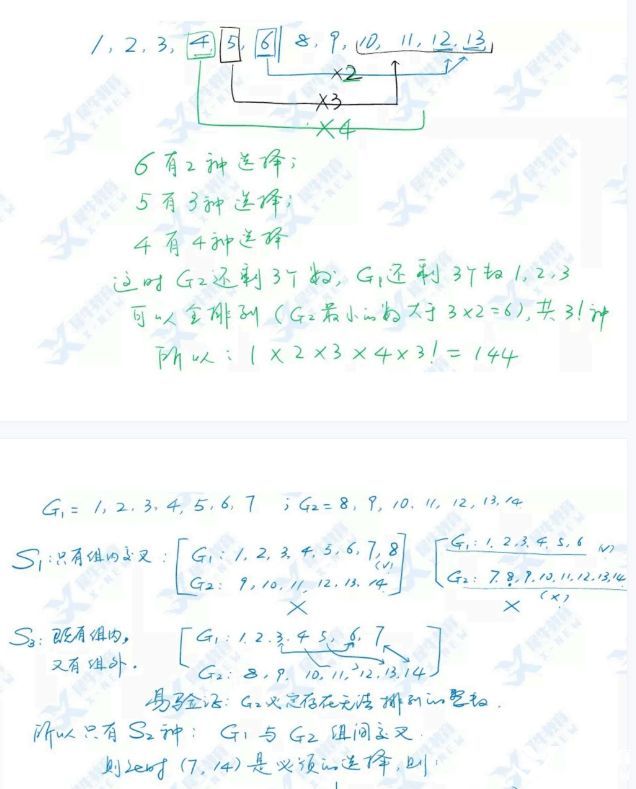 1, 2, 3, 4, 5, 6 | 8, 9, 10, 11, 12, 13
×2
×3
×4
6有2种选择;
5有3种选择;
4有4种选择
这时G2还剩3个数, G1还剩3个数1, 2, 3
可以全排列 (G2最小的数大于3×2=6), 共3!种
所以: 1×2×3×4×3! = 144
G1 = 1, 2, 3, 4, 5, 6, 7 ; G2 = 8, 9, 10, 11, 12, 13, 14
S1: 只有组内交叉: [ G1: 1, 2, 3, 4, 5, 6, 7, 8 (√) [ G1: 1, 2, 3, 4, 5, 6 (√)
G2: 9, 10, 11, 12, 13, 14 ] × G2: 7, 8, 9, 10, 11, 12, 13, 14 (×) ×
S2: 既有组内, [ G1: 1, 2, 3, 4, 5, 6, 7
又有组外. G2: 8, 9, 10, 11, 12, 13, 14 ]
易验证: G2必定存在无法排列的整数.
所以只有S2种: G1与G2组间交叉.
则此时 (7, 14) 是必须的选择, 则: